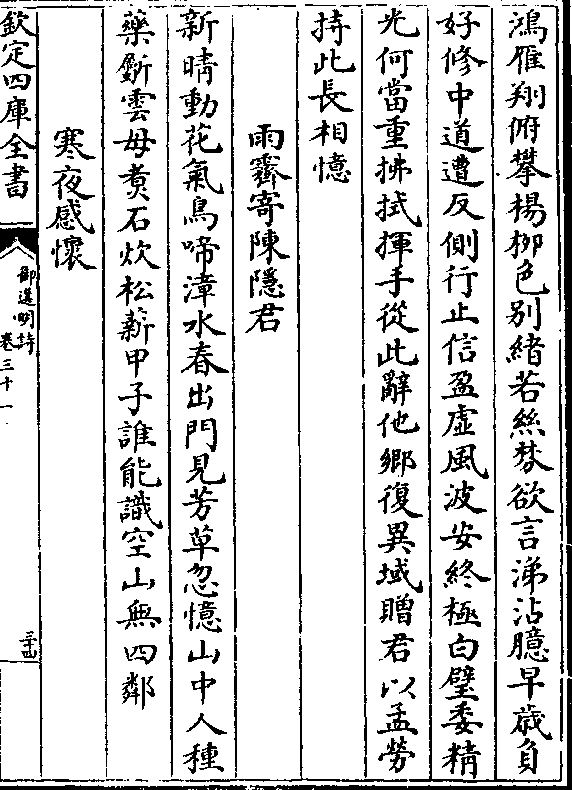 鴻雁翔俯攀楊柳色別緒若絲棼欲言涕沾臆早歲負
好修中道遭反側行止信盈虛風波安終極白璧委精
光何當重拂拭揮手從此辭他鄉復異域贈君以孟勞
持此長相憶
雨霽寄陳隱君
新晴動花氣鳥啼漳水春出門見芳草忽憶山中人種
藥斸雲母煑石炊松薪甲子誰能識空山無四鄰
寒夜感懷
欽定四庫全書
御選明詩
卷三十一
三西